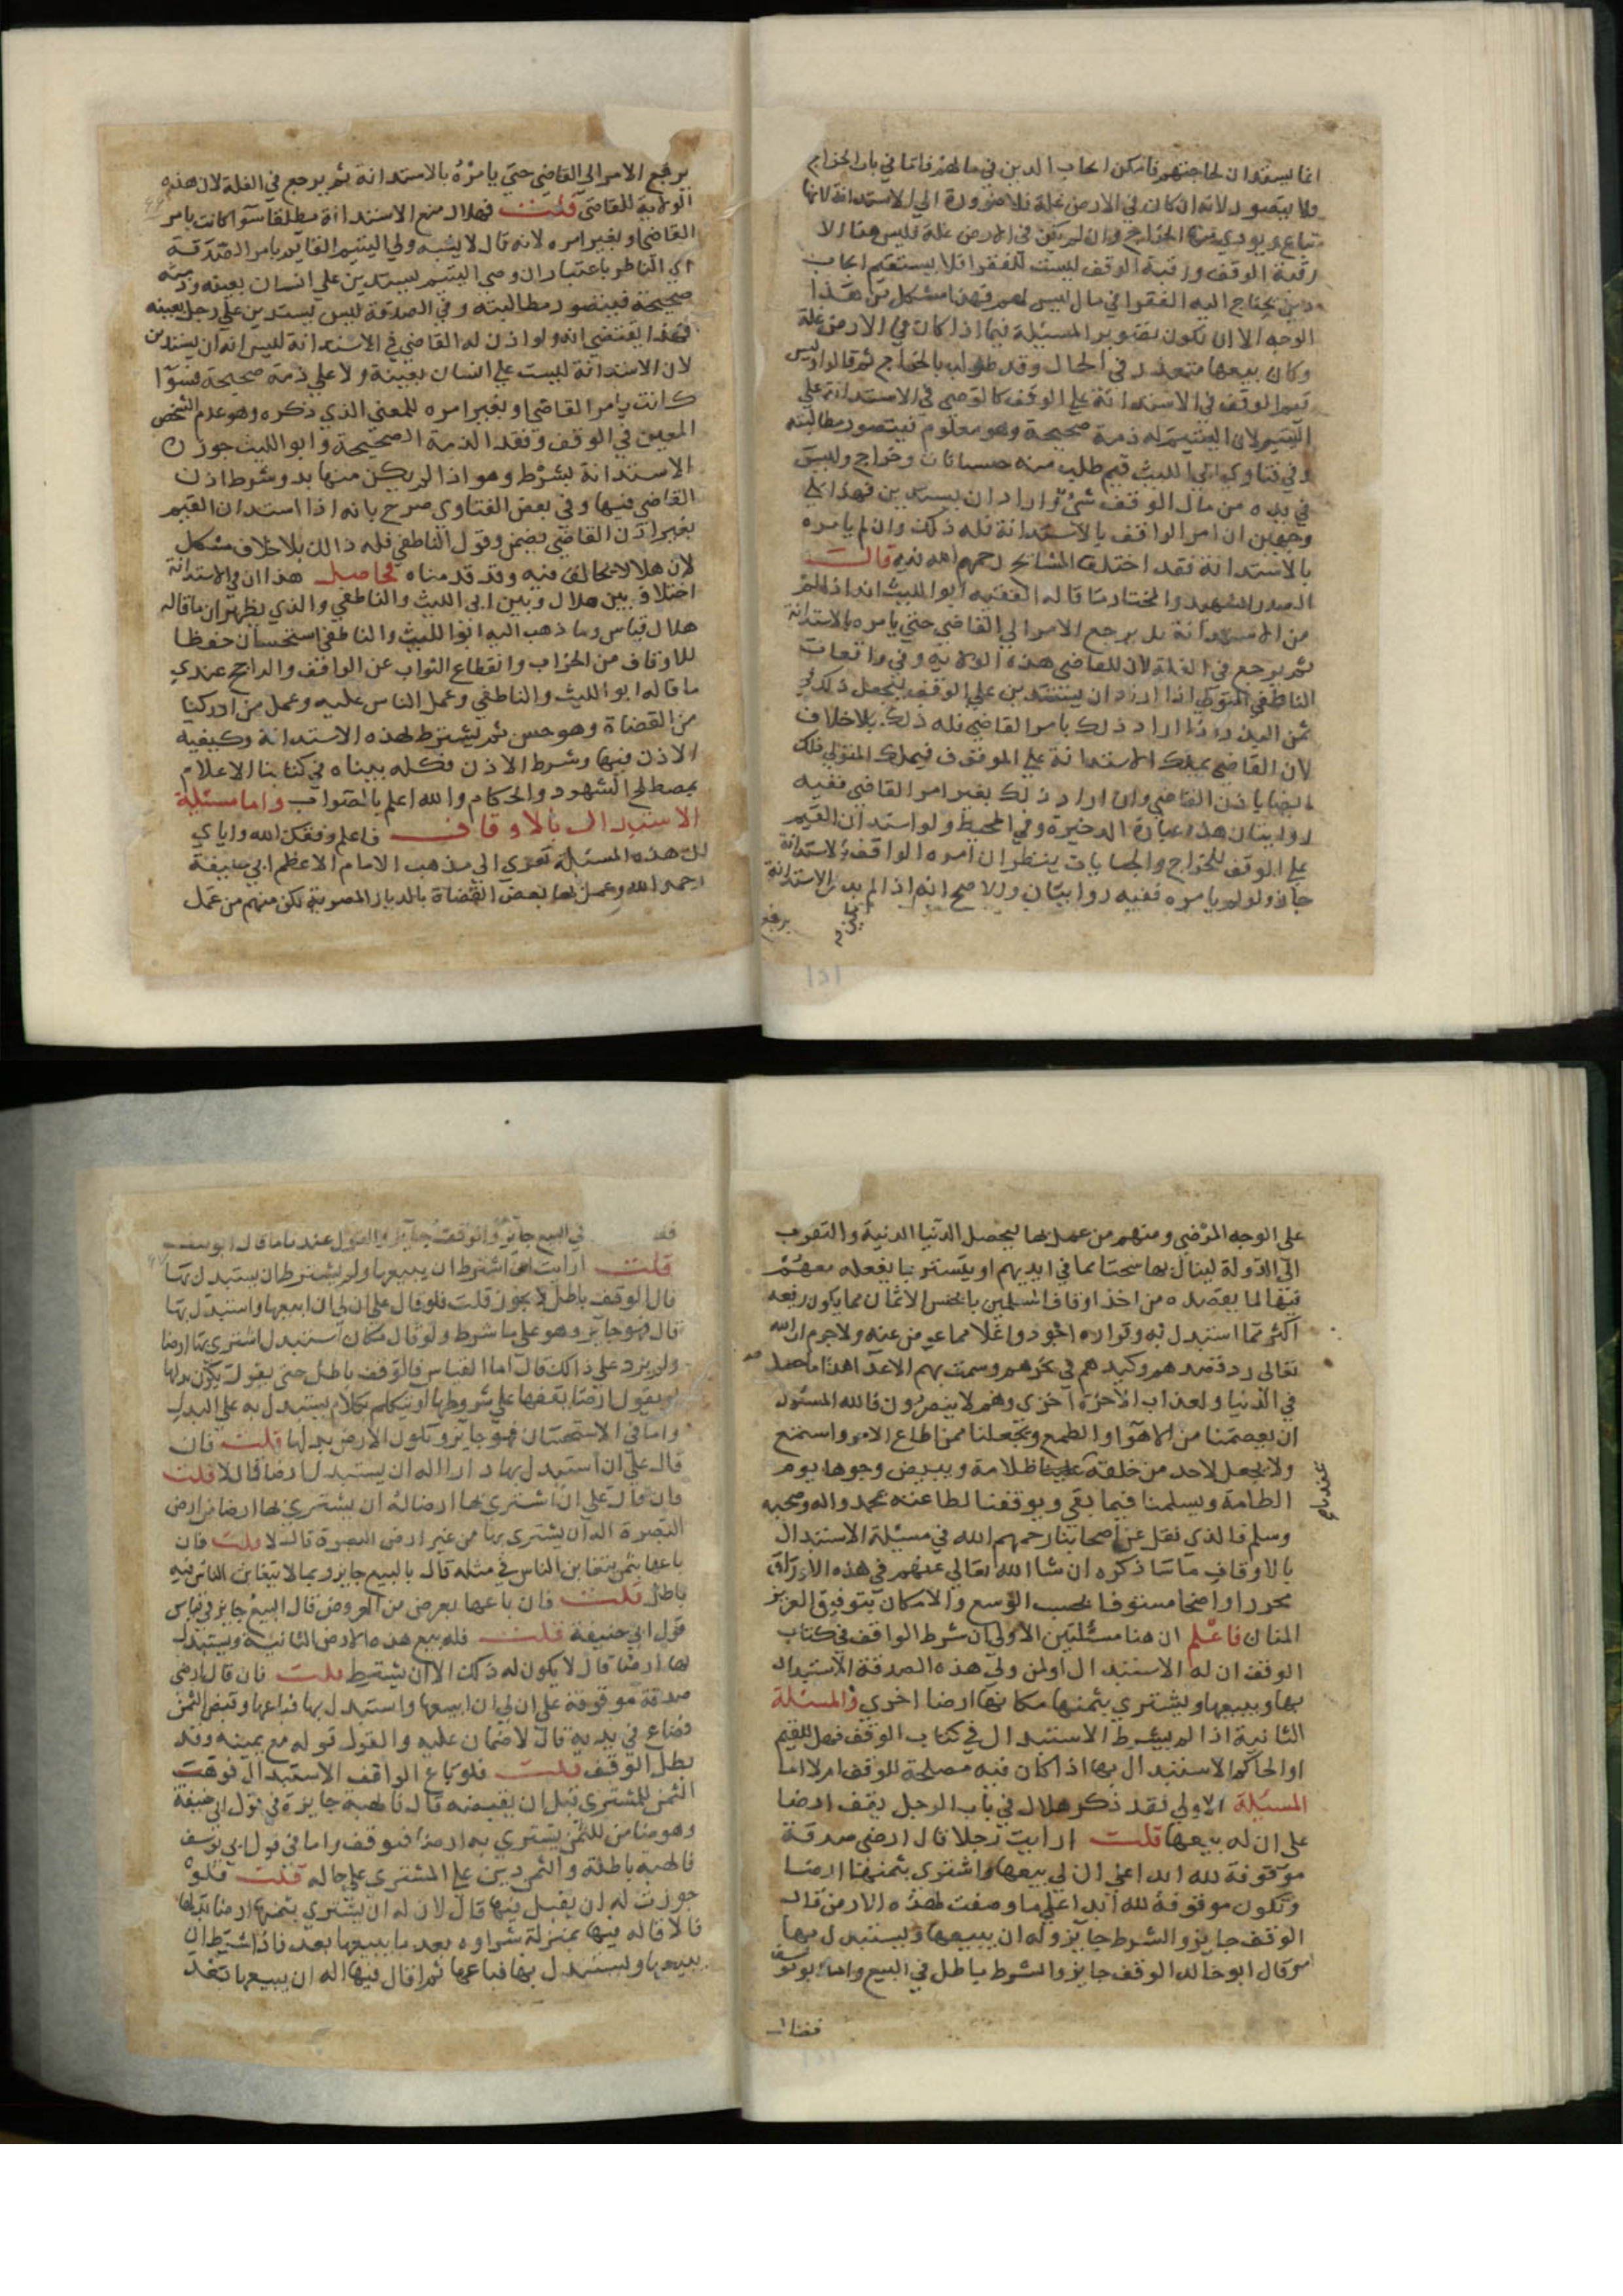 انما يستدان لحاجتهم فامكن ايجاب الدين في مالهم فاما في باب الخراج
ولا يتصور لانه ان كان في الارض غلة فلا ضرورة الي الاستدانة لانها
تباع ويودي منها الخراج وان لم يكن في الارض غلة فليس هنا الا
رقبة الوقف ورقبة الوقف ليست للفقرا فلا يستقيم ايجاب
دين يحتاج اليه الفقرا في مال ليس لهم فهذا مشكل من هذا
الوجه الا ان يكون تصوير المسيلة فيما اذا كان في الارض غلة
وكان بيعها متعذر في الحال وقد طولب بالخراج ثم قالوا وليس
قيم الوقف في الاستدانة علي الوقف كالوصي في الاستدانة علي
اليتيم لان اليتيم له ذمة صحيحة وهو معلوم فيتصور مطالبته
وفي فتاوي ابي الليث قيم طلب منه جبايات وخراج وليس
في يده من مال الوقف شئ اراد ان يستدين فهذا علي
وجهين ان امر الواقف بالاستدانة فله ذلك وان لم يامره
بالاستدانة فقد اختلف المشايخ رحمهم الله فيه قال
الصدر الشهيد والمختار ما قاله الفقيه ابو الليث انه اذا لم
من الاستدانة بد يرجع الامر الي القاضي حتي يامره بالاستدانة
ثم يرجع في الغلة لان للقاضي هذه الولاية وفي واقعات
الناطفي المتولي اذا اراد ان يستدين علي الوقف يجعل ذلك في
ثمن البذر اذا اراد ذلك بامر القاضي فله ذلك بلا خلاف
لان القاضي يملك الاستدانة علي الموقوف فيملك المتولي ذلك
ايضا باذن القاضي وان اراد ذلك بغير امر القاضي ففيه
روايتان هذه عبارة الذخيرة وفي المحيط ولو استدان القيم
علي الوقف للخراج والجبايات ينظر ان امره الواقف بالاستدانة
جاز ولو لم يامره ففيه روايتان والاصح انه اذا لم يكن بد من الاستدانة
يرجع
يرجع الامر الي القاضي حتي يامره بالاستدانة ثم يرجع في الغلة لان هذه
الولاية للقاضي قلت فهلال منع الاستدانة مطلقا سوا كانت بامر
القاضي او بغير امره لانه قال لا يشبه ولي اليتيم القايم بامر الصدقة
اي الناظر باعتبار ان وصي اليتيم يستدين علي انسان بعينه وذمته
صحيحة فيتصور مطالبته وفي الصدقة ليس يستدين علي رجل بعينه
فهذا يقتضي انه ولو اذن له القاضي في الاستدانة ليس له ان يستدين
لان الاستدانة ليست علي انسان بعينه ولا علي ذمة صحيحة فسوا
كانت بامر القاضي او بغير امره للمعني الذي ذكره وهو عدم الشخص
المعين في الوقف وفقد الذمة الصحيحة وابو الليث جوز
الاستدانة بشرط وهو اذا لم يكن منها بد وشرط اذن
القاضي فيها وفي بعض الفتاوي صرح بانه اذا استدان القيم
بغير اذن القاضي يضمن وقول الناطفي فله ذلك بلا خلاف مشكل
لان هلالا يخالف فيه وقد قدمناه فحاصل هذا ان في الاستدانة
اختلاف بين هلال وبين ابي الليث والناطفي والذي يظهر ان ما قاله
هلال قياس وما ذهب اليه ابو الليث والناطفي استحسان حفظا
للاوقاف من الخراب وانقطاع الثواب عن الواقف والراجح عندي
ما قاله ابو الليث والناطفي وعمل الناس عليه وعمل من ادركنا
من القضاة وهو حسن ثم يشترط لهذه الاستدانة وكيفية
الاذن فيها وشرط الاذن فكله بيناه في كتابنا الاعلام
بمصطلح الشهود والحكام والله اعلم بالصواب واما مسئلة
الاستبدال بالاوقاف فاعلم وفقك الله واياي
ان هذه المسئلة تعزي الي مذهب الامام الاعظم ابي حنيفة
رحمه الله وعمل بها بعض القضاة بالديار المصرية لكن منهم من عمل
علي الوجه المرضي ومنهم من عمل بها ليحصل الدنيا الدنية والتقرب
الي الدولة لينال بها سحتا مما في ايديهم او يتستر بما يفعله معهم
فيها لما يقصده من اخذ اوقاف المسلمين بابخس الاثمان مما يكون ريعه
اكثر مما استبدل به وتراه اجود واغلا مما عوض عنه ولا جرم ان الله
تعالي رد قصدهم وكيدهم في نحرهم وسمت بهم الاعدا هذا ما حصل
في الدنيا ولعذاب الاخرة اخزي وهم لا ينصرون فالله المسئول
ان يعصمنا من الاهوا والطمع ويجعلنا ممن اطاع الامر واستمع
ولا يجعل لاحد من خلقه علينا ظلامة ويبيض وجوهنا يوم
الطامة ويسلمنا فيما بقي ويوفقنا لطاعته بمحمد واله وصحبه
وسلم فالذي نقل عن اصحابنا رحمهم الله في مسئلة الاستبدال
بالاوقاف ما ساذكره ان شا الله تعالي عنهم في هذه الاوراق
محررا واضحا مستوفا بحسب الوسع والامكان بتوفيق العزيز
المنان فاعلم ان هنا مسئلتين الاولي ان شرط الواقف في كتاب
الوقف ان له الاستبدال او لمن ولي هذه الصدقة الاستبدال
بها وبيعها ويشتري بثمنها مكانها ارضا اخري والمسئلة
الثانية اذا لم يشترط الاستبدال في كتاب الوقف فهل للقيم
او الحاكم الاستبدال بها اذا كان فيه مصلحة للوقف ام لا اما
المسئلة الاولي فقد ذكر هلال في باب الرجل يقف ارضا
علي ان له بيعها قلت ارايت رجلا قال ارضي صدقة
موقوفة لله ابدا علي ان لي بيعها واشتري بثمنها ارضا
وتكون موقوفة لله ابدا علي ما وصفت لهذه الارض قال
الوقف جايز والشرط جايز وله ان يبيعها ويستبدل بها
وقال ابو خالد الوقف جايز والشرط باطل في البيع واما ابو يوسف
فقال
في البيع جايز والوقف جايز والقول عندنا ما قال ابو يوسف
قلت ارايت ان اشترط ان يبيعها ولم يشترط ان يستبدل بها
قال الوقف باطل لا يجوز قلت فلو قال علي ان لي ان ابيعها واستبدل بها
قال فهو جايز وهو علي ما شرط ولو قال مكان استبدل اشتري بها ارضا
ولم يزد علي ذلك قال اما القياس فالوقف باطل حتي يقول يكون بدلها
او يقول ارضا يقفها علي شروطها او يتكلم بكلام يستبدل به علي البدل
واما في الاستحسان فهو جايز وتكون الارض بدلها قلت فان
قال علي ان استبدل بها دارا اله ان يستبدل ارضا قال لا قلت
فان قال علي ان اشتري بها ارضا له ان يشتري بها ارضا من ارض
البصرة اله ان يشتري بها من غير ارض البصرة قال لا قلت فان
باعها بثمن يتغابن الناس في مثله قال بالبيع جايز وبما لا يتغابن الناس فيه
باطل قلت فان باعها بعرض من العروض قال البيع جايز في قياس
قول ابي حنيفة قلت فله بيع هذه الارض الثانية ويستبدل
بها ارضا قال لا يكون له ذلك الا ان يشترط قلت فان قال ارضي
صدقة موقوفة علي ان لي ان ابيعها واستبدل بها فباعها وقبض الثمن
فضاع في يديه قال لا ضمان عليه والقول قوله مع يمينه وقد
بطل الوقف قلت فلو باع الواقف الاستبدال فوهب
الثمن للمشتري قبل ان يقبضه قال فالهبة جايزة في قول ابي حنيفة
وهو ضامن للثمن يشتري به ارضا فتوقف واما في قول ابي يوسف
فالهبة باطلة والثمن دين علي المشتري علي حاله قلت فلو
جوزت له ان يقيل فيها قال لان له ان يشتري بثمنها ارضا بدلها
فالاقالة فيها بمنزلة شراوه بعد ما يبيعها بعد فاذا اشترط ان
يبيعها ويستبدل بها فباعها ثم اقال فيها اله ان يبيعها بعد